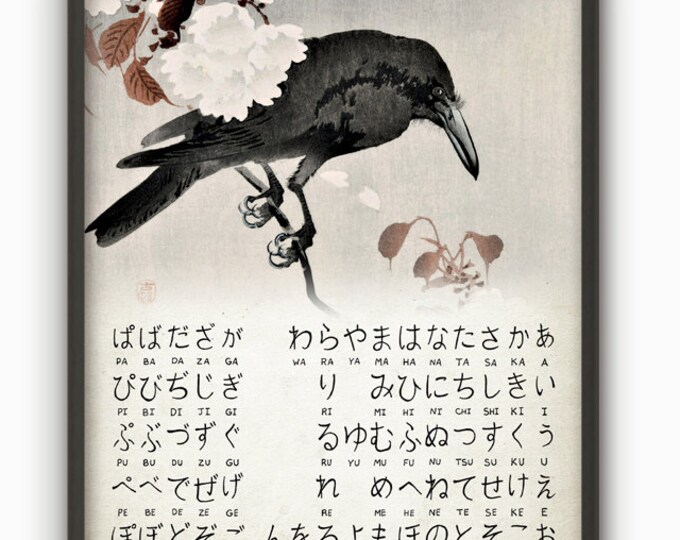 ぱばだざが わらやまはなたさかあ
PA BA DA ZA GA WA RA YA MA HA NA TA SA KA A
ぴびぢじぎ り みひにちしきい
PI BI DI JI GI RI MI HI NI CHI SHI KI I
ぷぶづずぐ るゆむふぬつすくう
PU BU DU ZU GU RU YU MU FU NU TSU SU KU U
ぺべでぜげ れ めへねてせけえ
PE BE DE ZE GE RE ME HE NE TE SE KE E
ぽぼどぞご んをろよもほのとそこお